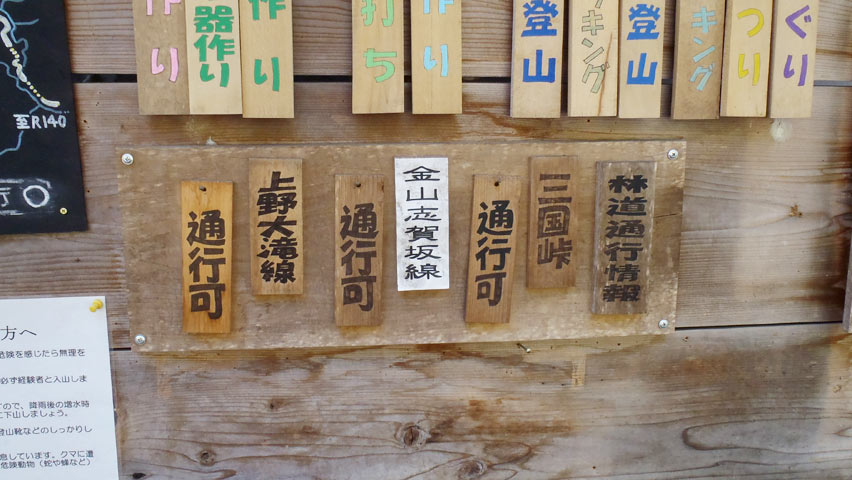 作り
器作り
作り
打ち
作り
登山
キング
登山
キング
つり
ぐり
至R140
行○
林道通行情報
三国峠
通行可
金山志賀坂線
通行可
上野大滝線
通行可
方へ
危険を感じたら無理を
必ず経験者と入山しま
ので、降雨後の増水時
に下山しましょう。
登山靴などのしっかりし
息しています。クマに遭
危険動物(蛇や蜂など)